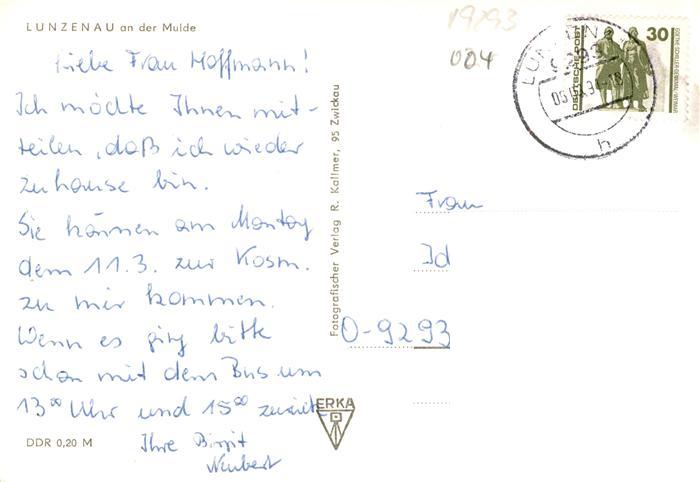 LUNZENAU an der Mulde
Liebe Frau Hoffmann!
Ich möchte Ihnen mit-
teilen, daß ich wieder
zuhause bin.
Sie können am Montag
dem 11.3. zur Kosm.
zu mir kommen.
Wenn es ging bitte
schon mit dem Bus um
13⁰⁰ Uhr und 15⁰⁰ zurück.
Ihre Birgit
Neubert
DDR 0,20 M
Fotografischer Verlag R. Kallmer, 95 Zwickau
ERKA
19293
004
9293
h
DEUTSCHE POST
30
GOETHE-SCHILLER-DENKMAL · WEIMAR
Frau
Id
O-9293